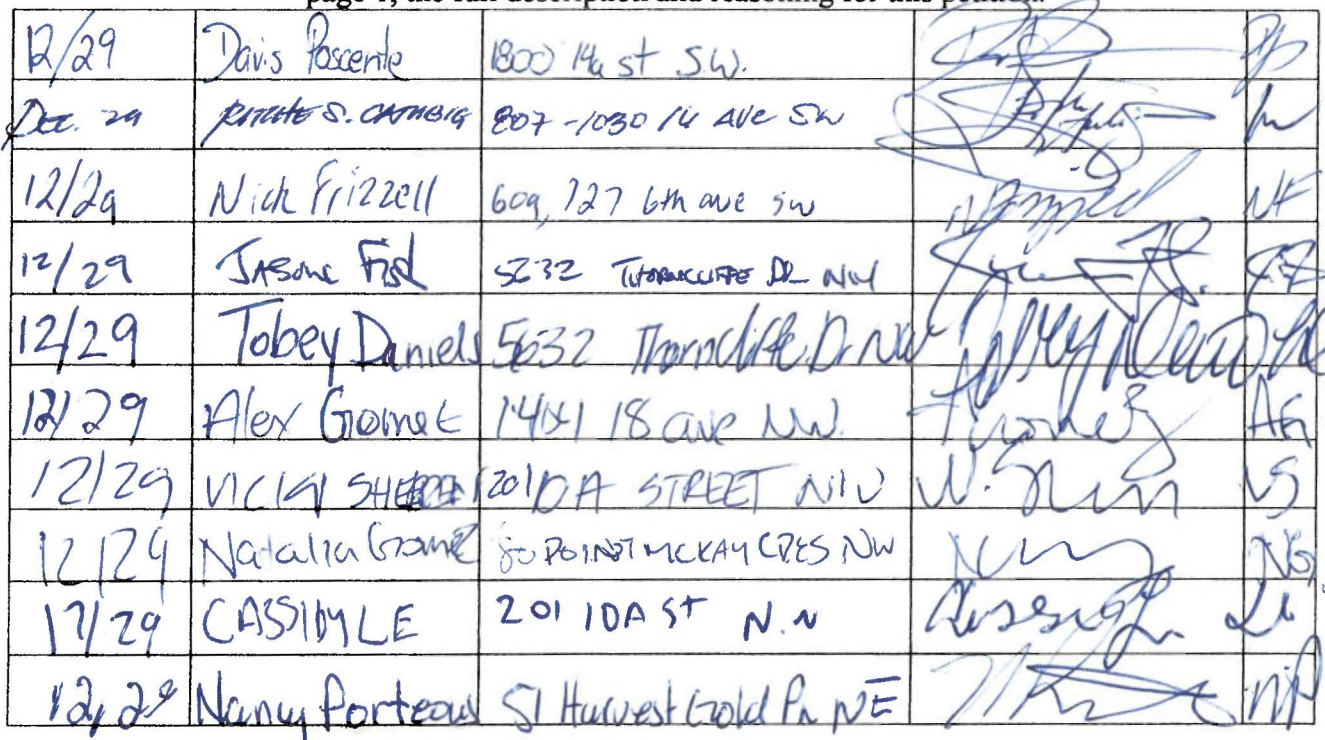 page 1, the full description and reasoning for this petition.
12/29 Davis Poscente 1800 14a st S.W.
Dec. 29 RITCHE S. 807-1030 14 AVE SW
12/29 Nick Frizzell 609, 727 6th ave sw NF
12/29 5632 THORNCLIFFE DR NW
12/29 Tobey Daniels 5632 Thorncliffe Dr NW
12/29 Alex Gomez 18 ave NW. AG
12/29 VICKY 201 10A STREET NW VS
12/29 Natalia Gomez 80 POINT MCKAY CRES NW NG
12/29 CASSIDY LE 201 10A ST N.W
12, 29 Nancy Porteous 51 Harvest Gold NE NP